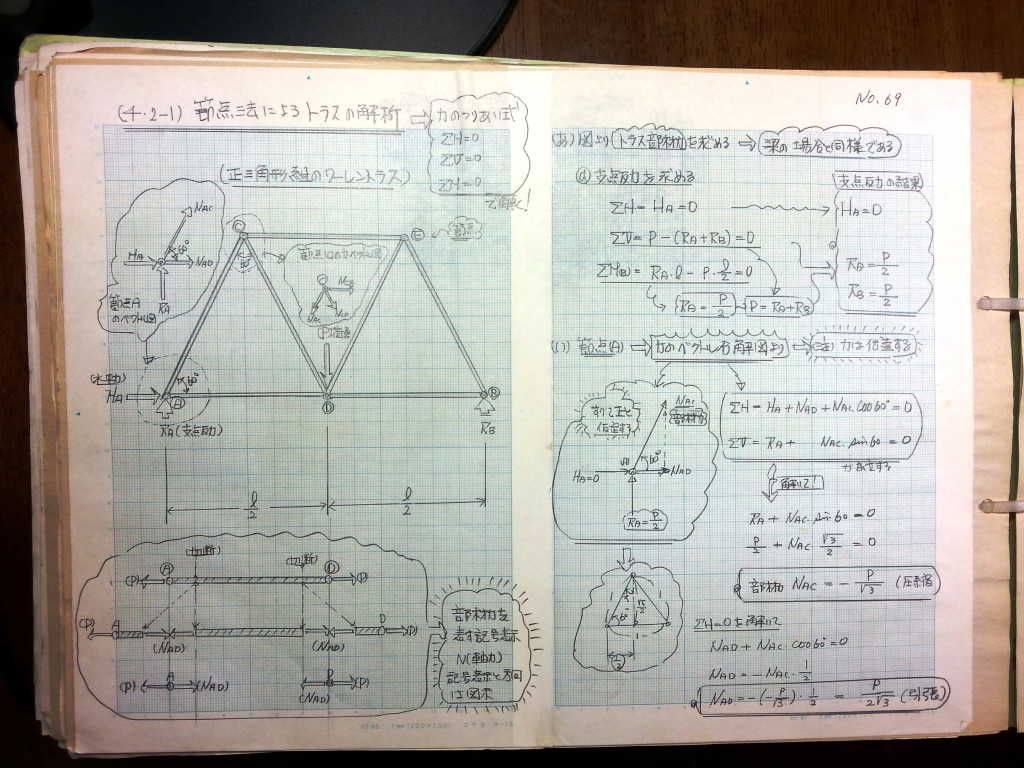 No. 69
(4・2-1) 節点法によるトラスの解析 ⇒ 力のつりあい式
ΣH=0
ΣV=0
ΣM=0
で解く!
(正三角形組のワーレントラス)
NAC
HA
60°
NAD
RA
節点A
のベクトル図
C
E
節点
60°
節点(C)のベクトル図
NAC
NCD
(P)荷重
(水平力)
HA
A
60°
D
B
RA(支点反力)
RB
l/2
l/2
(切断)
(切断)
(P) A D (P)
(P) A (NAD) (NAD) D (P)
(P) A (NAD) (NAD) D (P)
部材力を
表す記号表示
N(軸力)
記号表示と矢印
は図示
(あ) 図より トラス部材力 を求める ⇒ 梁の場合と同様である
(a) 支点反力を求める
支点反力の結果
ΣH=HA=0
HA=0
ΣV=P-(RA+RB)=0
ΣM(B)=RA・l-P・l/2=0
RA=P/2
RB=P/2
RA=P/2
P=RA+RB
(い) 節点(A) ⇒ 力のベクトル分解図より ⇒ (注) 力は仮定する
すべて正と
仮定する
NAC
(部材力)
HA=0
A
60°
NAD
RA=P/2
ΣH=HA+NAD+NAC・cos60°=0
ΣV=RA+ NAC・sin60=0
が成立する
解いて!
RA+NAC・sin60=0
P/2+NAC・√3/2=0
部材力 NAC=-P/√3 (圧縮)
60°
√3/2
1/2
ΣH=0を解いて
NAD+NAC・cos60°=0
NAD=-NAC・1/2
NAD=-(-P/√3)・1/2=P/2√3 (引張)